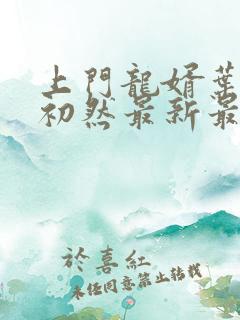 上門龍婿葉
初然最新最
於喜紅
未任同意禁止轉載